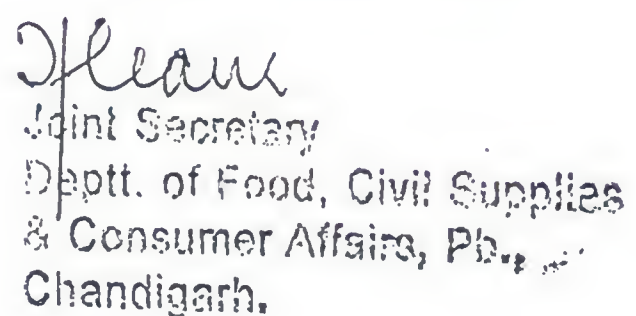 Joint Secretary
Deptt. of Food, Civil Supplies
& Consumer Affairs, Pb.,
Chandigarh.